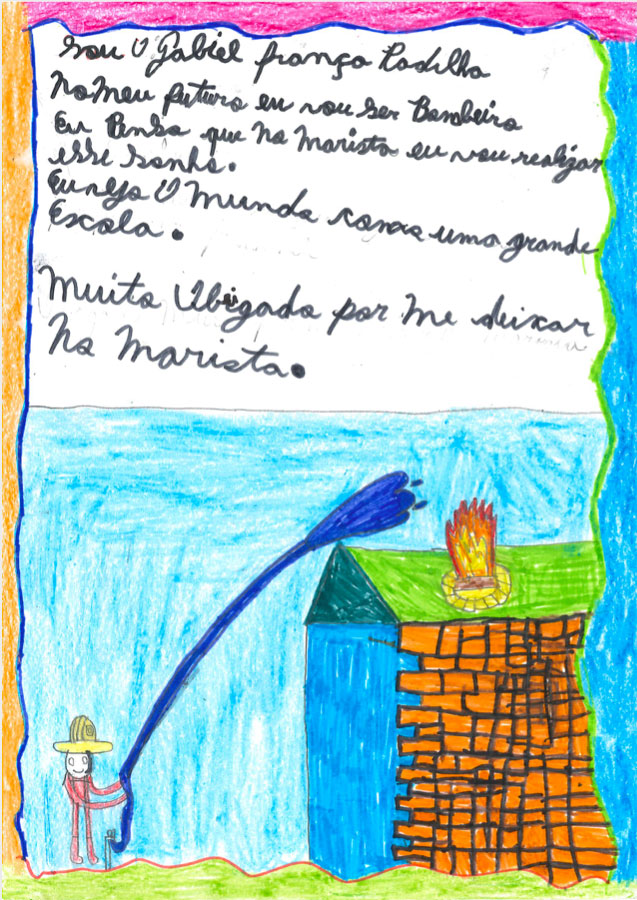 Sou O Gabiel frança Padilha
No meu futuro eu vou ser Bombeiro
Eu Penso que na Marista eu vou realizar
esse sonho.
Eu vejo O mundo como uma grande
Escola.
Muito Obrigado por me deixar
na Marista.